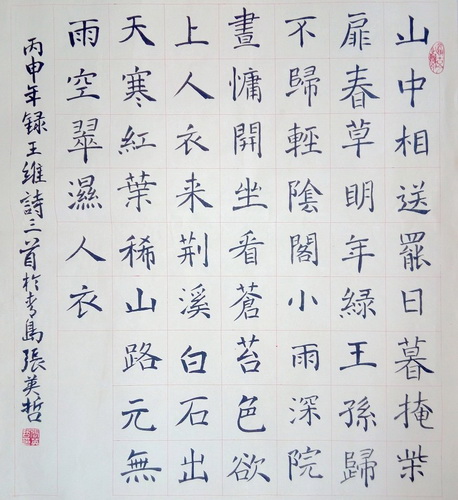 山中相送罷日暮掩柴
扉春草明年綠王孫歸
不歸輕陰閣小雨深院
晝慵開坐看蒼苔色欲
上人衣来荆溪白石出
天寒紅葉稀山路元無
雨空翠濕人衣
丙申年録王維詩三首於青島張英哲